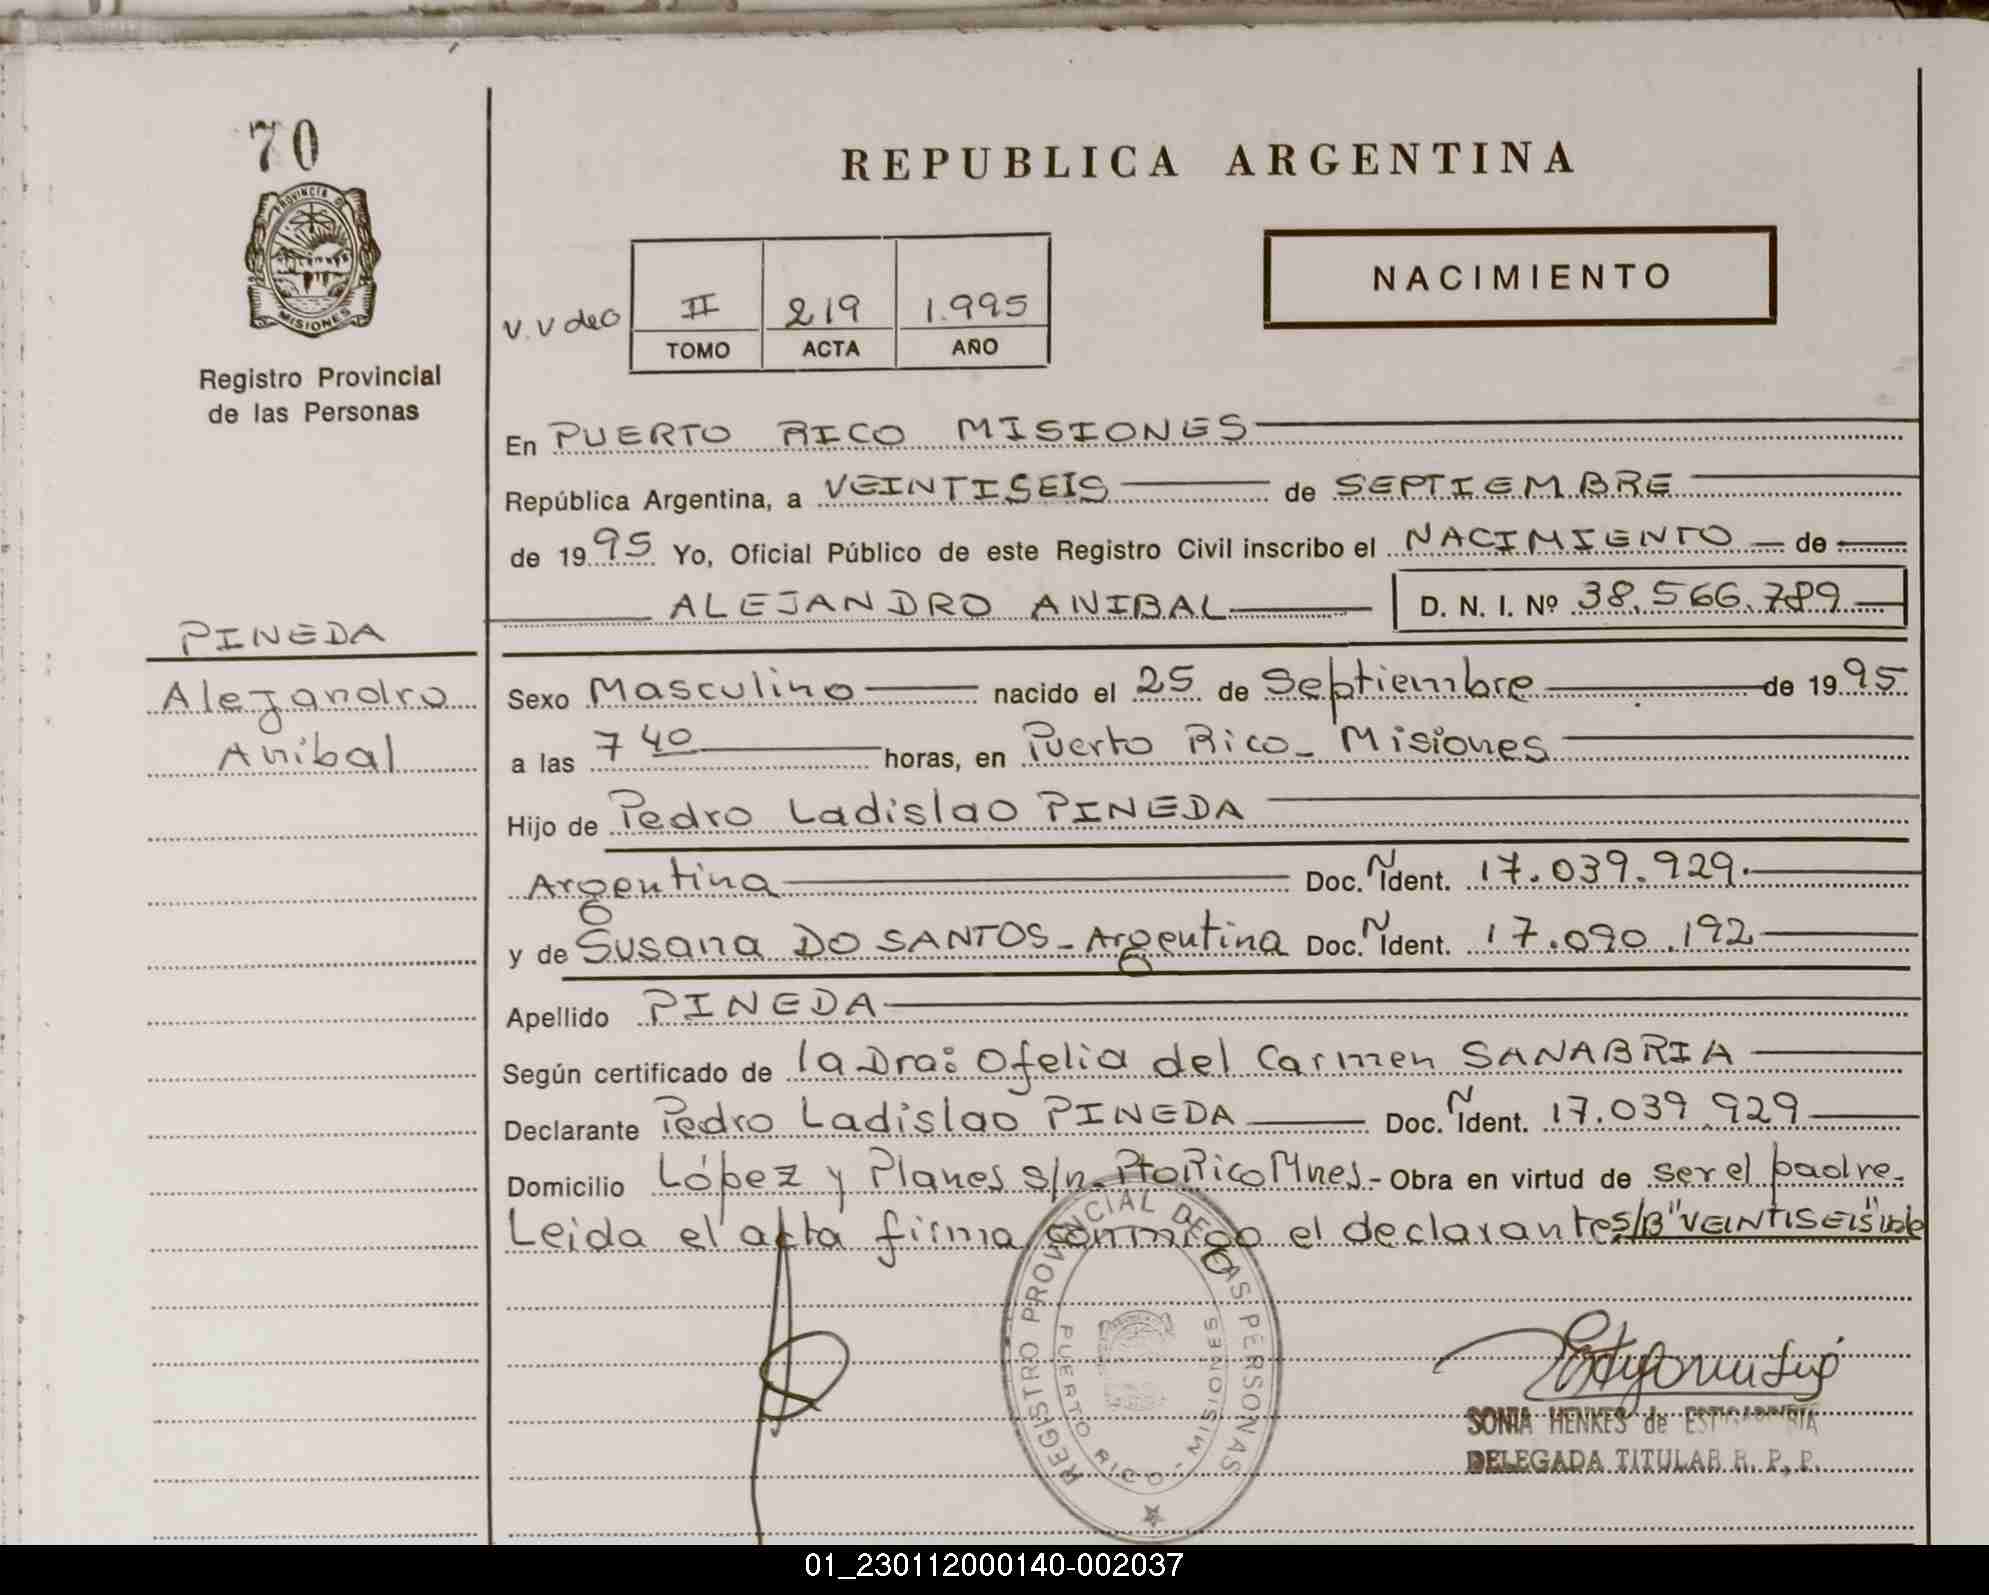 70
PROVINCIA DE
MISIONES
Registro Provincial
de las Personas
REPUBLICA ARGENTINA
NACIMIENTO
V.V de O
II 219 1.995
TOMO ACTA AÑO
En PUERTO RICO MISIONES
República Argentina, a VEINTISEIS de SEPTIEMBRE
de 1995 Yo, Oficial Público de este Registro Civil inscribo el NACIMIENTO de
ALEJANDRO ANIBAL D. N. I. Nº 38.566.789
PINEDA
Alejandro
Anibal
Sexo Masculino nacido el 25 de Septiembre de 1995
a las 7 40 horas, en Puerto Rico - Misiones
Hijo de Pedro Ladislao PINEDA
Argentina Doc. N Ident. 17.039.929.
y de Susana DO SANTOS - Argentina Doc. N Ident. 17.090.192
Apellido PINEDA
Según certificado de la Dra: Ofelia del Carmen SANABRIA
Declarante Pedro Ladislao PINEDA Doc. N Ident. 17.039.929
Domicilio López y Planes s/n. Pto Rico Mnes.- Obra en virtud de ser el padre.
Leida el acta firma conmigo el declarante S/B "VEINTISEIS" vale
REGISTRO PROVINCIAL DE LAS PERSONAS
PUERTO RICO - MISIONES
SONIA HENKES de ESTIGARRIBIA
DELEGADA TITULAR R. P. P.
01_230112000140-002037